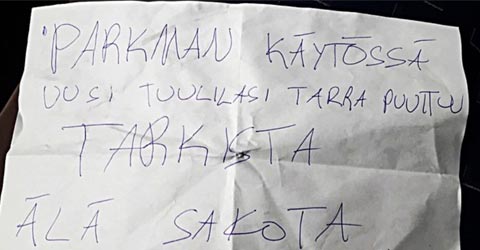 PARKMAN KÄYTÖSSÄ
UUSI TUULILASI TARRA PUUTTUU
TARKISTA
ÄLÄ SAKOTA